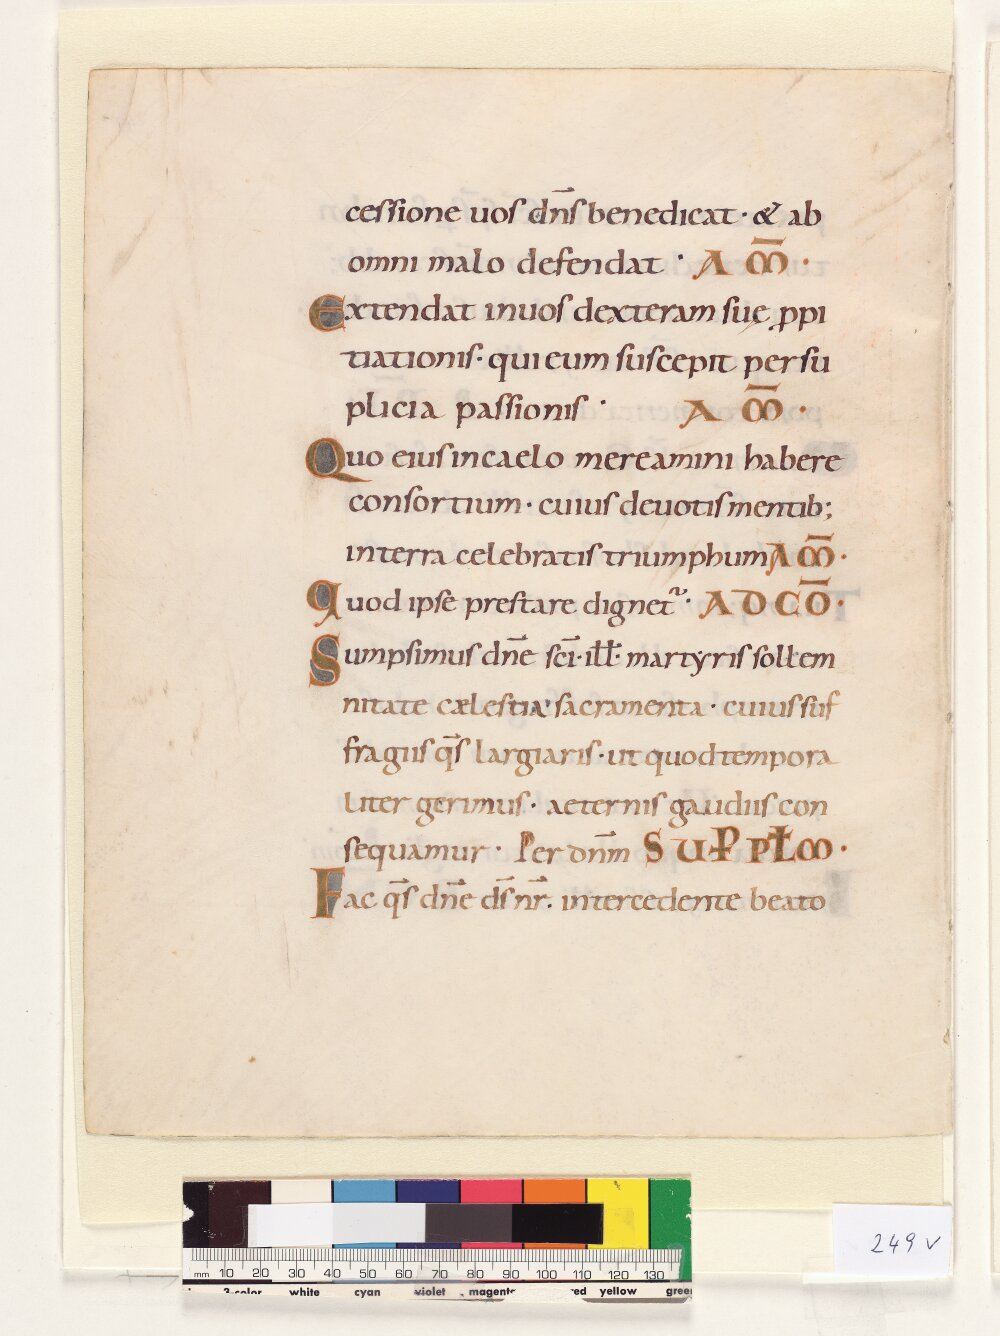 cessione uos dn̄s benedicat · & ab
omni malo defendat · A M̄ ·
Extendat in uos dexteram suę ꝓpi
tiationis · qui eum suscepit per su
plicia passionis · A M̄ ·
Quo eius in caelo mereamini habere
consortium · cuius deuotis mentib;
in terra celebratis triumphum A M̄ ·
quod ipse prestare dignet᷑ · AD CŌ ·
Sumpsimus dn̄e sc̄i · ill̄ · martyris sollem
nitate cælestia sacramenta · cuius suf
fragiis q̄s largiaris · ut quod tempora
liter gerimus · aeternis gaudiis con
sequamur · Per dn̄m SUP PŁM ·
Fac q̄s dn̄e ds̄ nr̄ · intercedente beato
mm 10 20 30 40 50 60 70 80 90 100 110 120 130
3-color white cyan violet magenta red yellow green
249 v